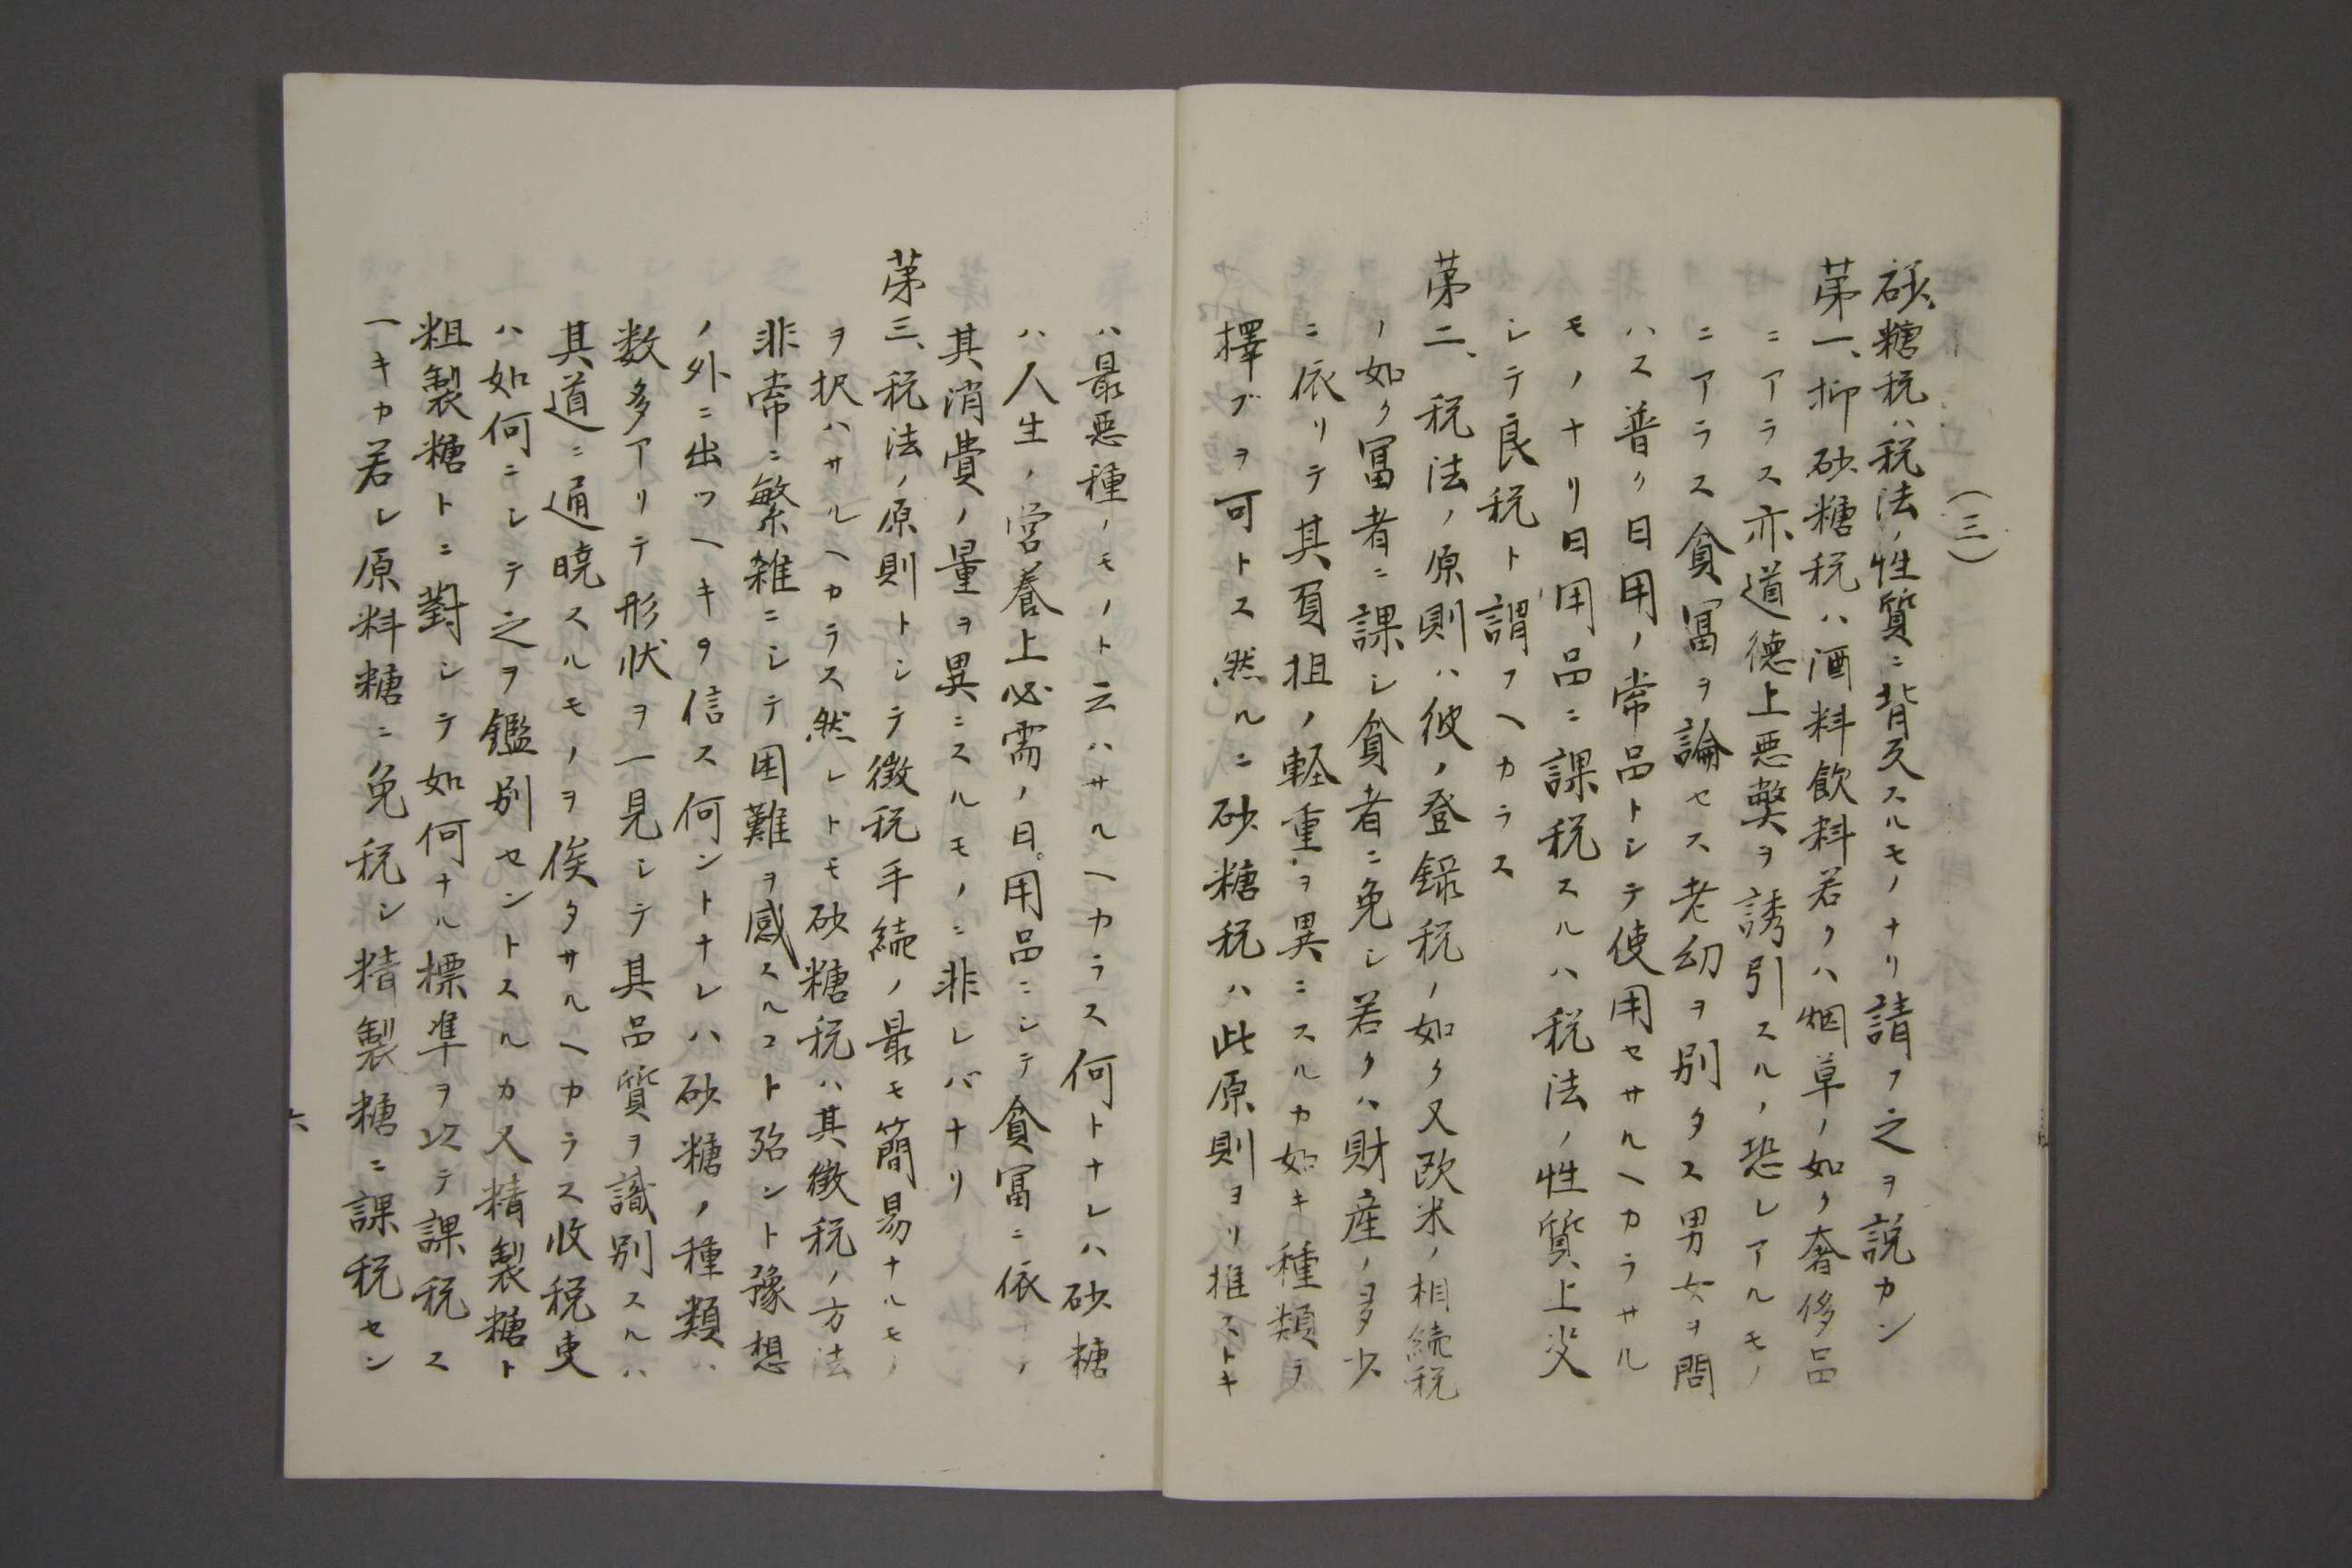 （三）
砂糖税ハ税法ノ性質ニ背戻スルモノナリ請フ之ヲ説カン
第一、抑砂糖税ハ酒料飲料若クハ烟草ノ如ク奢侈品
ニアラス亦道徳上悪弊ヲ誘引スルノ恐レアルモノ
ニアラス貧冨ヲ論セス老幼ヲ別タス男女ヲ問
ハス普ク日用ノ常品トシテ使用セサルヘカラサル
モノナリ日用品ニ課税スルハ税法ノ性質上决
シテ良税ト謂フヘカラス
第二、税法ノ原則ハ彼ノ登録税ノ如ク又欧米ノ相続税
ノ如ク冨者ニ課シ貧者ニ免シ若クハ財産ノ多少
ニ依リテ其負担ノ軽重ヲ異ニスルカ如キ種類ヲ
擇ブヲ可トス然ルニ砂糖税ハ此原則ヨリ推ストキ
ハ最悪種ノモノト云ハサルヘカラス何トナレハ砂糖
ハ人生ノ営養上必需ノ日用品ニシテ貧冨ニ依
其消費ノ量ヲ異ニスルモノニ非レバナリ
第三、税法ノ原則トシテ徴税手続ノ最モ簡易ナルモノ
ヲ択ハサルヘカラス然レトモ砂糖税ハ其徴税ノ方法
非常ニ繁雑ニシテ困難ヲ感スルコト殆ント豫想
ノ外ニ出ツヘキヲ信ス何ントナレハ砂糖ノ種類ハ
数多アリテ形状ヲ一見シテ其品質ヲ識別スルハ
其道ニ通暁スルモノヲ俟タサルヘカラス收税吏
ハ如何ニシテ之ヲ鑑別セントスルカ又精製糖ト
粗製糖トニ對シテ如何ナル標準ヲ以テ課税ス
ヘキカ若シ原料糖ニ免税シ精製糖ニ課税セン
六